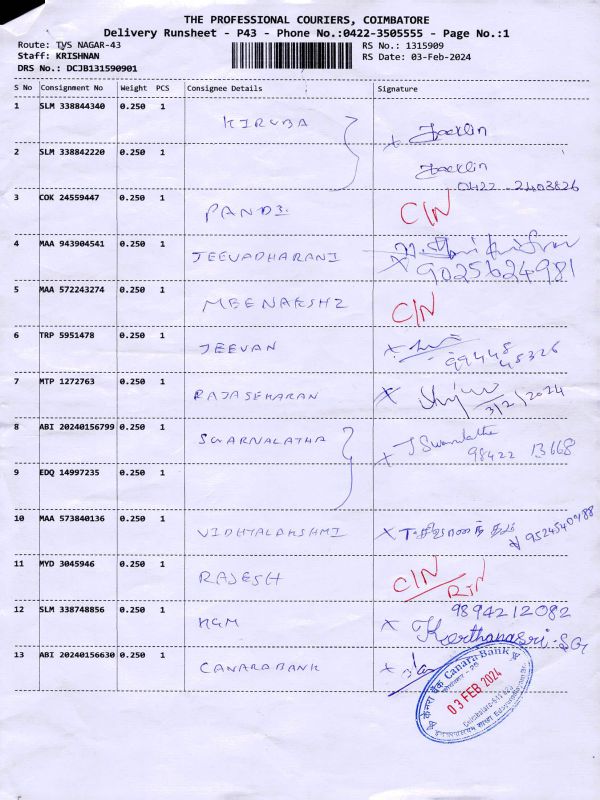 THE PROFESSIONAL COURIERS, COIMBATORE
Delivery Runsheet - P43 - Phone No.:0422-3505555 - Page No.:1
Route: TVS NAGAR-43 RS No.: 1315909
Staff: KRISHNAN RS Date: 03-Feb-2024
DRS No.: DCJB131590901
S No Consignment No Weight PCS Consignee Details Signature
1 SLM 338844340 0.250 1 KIRUBA Jocklin
2 SLM 338842220 0.250 1 Jocklin
0422 2403826
3 COK 24559447 0.250 1 PANDI. C/N
4 MAA 943904541 0.250 1 JEEVADHARANI
9025624981
5 MAA 572243274 0.250 1 MEENAKSHI C/N
6 TRP 5951478 0.250 1 JEEVAN
99448
45326
7 MTP 1272763 0.250 1 RAJASEKARAN
3/2/2024
8 ABI 20240156799 0.250 1 SWARNALATHA J Swarnalatha
98422 13668
9 EDQ 14997235 0.250 1
10 MAA 573840136 0.250 1 VIDHYALAKSHMI
9524540988
11 MYD 3045946 0.250 1 RAJESH C/N
RTN
12 SLM 338748856 0.250 1 KGM 9894212082
Keerthanasri.SG
13 ABI 20240156630 0.250 1 CANARA BANK
केनरा बैंक Canara Bank
03 FEB 2024